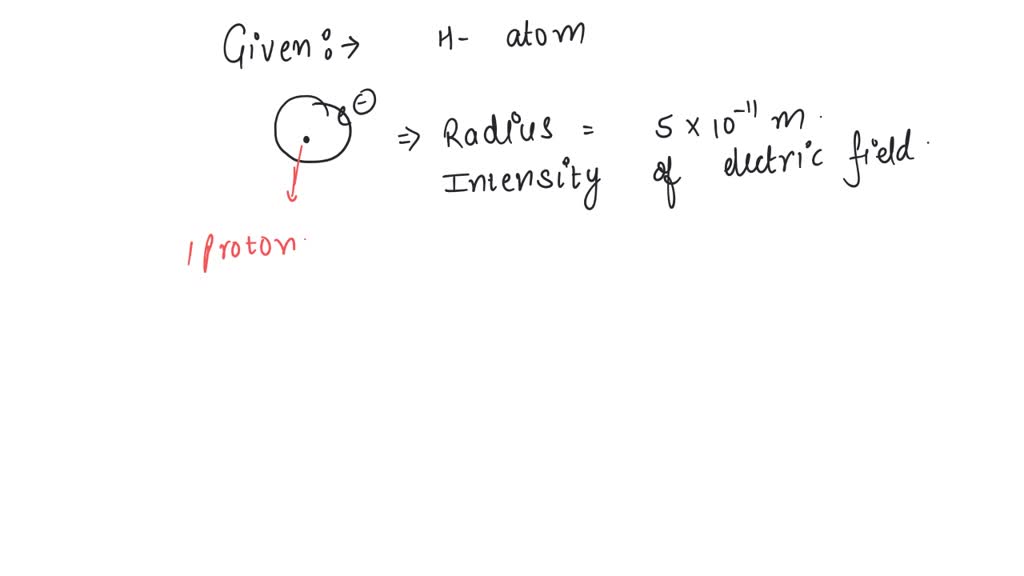 Given:→ H- atom
⊖
⇒ Radius = 5 × 10⁻¹¹ m.
Intensity of electric field.
1 proton.